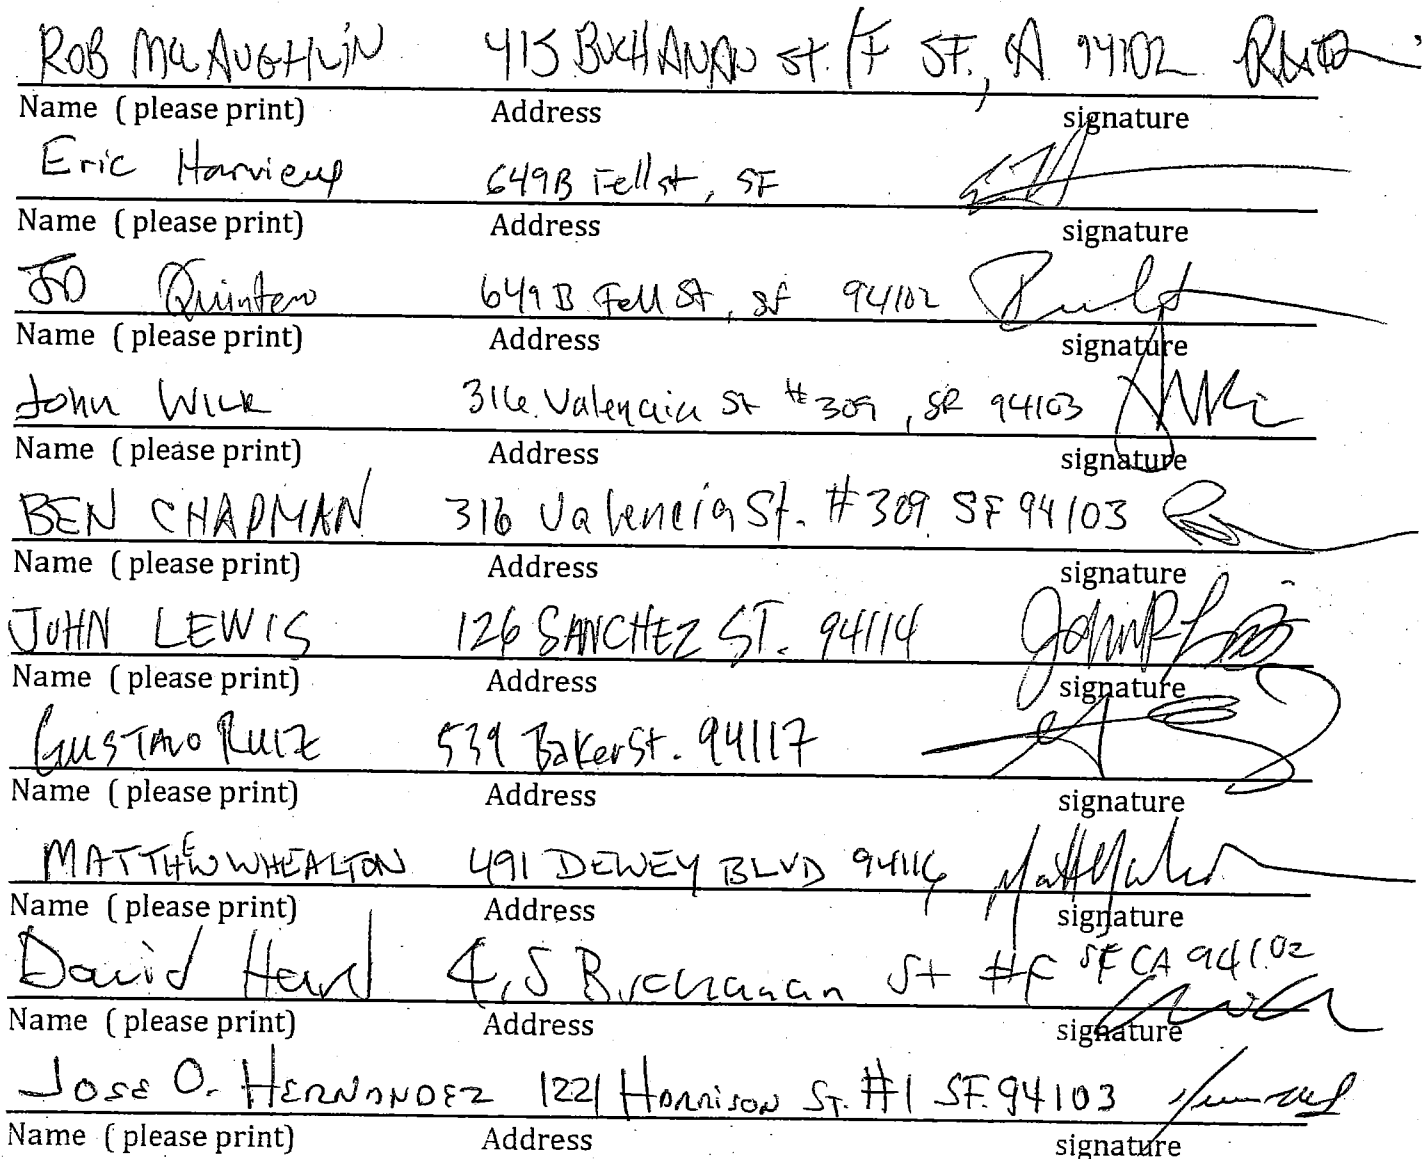 ROB McLAUGHLIN 415 BUCHANAN St. #F SF., CA 94102
Name ( please print) Address signature
Eric Harvieux 649B Fell st, SF
Name ( please print) Address signature
JD Quintero 649 B Fell St, SF 94102
Name ( please print) Address signature
John Wilk 316 Valencia St #309, SF 94103
Name ( please print) Address signature
BEN CHAPMAN 316 Valencia St. #309 SF 94103
Name ( please print) Address signature
JOHN LEWIS 126 SANCHEZ ST. 94114
Name ( please print) Address signature
GUSTAVO RUIZ 539 Baker St. 94117
Name ( please print) Address signature
MATTHEW WHEALTON 491 DEWEY BLVD 94116
Name ( please print) Address signature
David Hend 415 Buchanan St #F SF CA 94102
Name ( please print) Address signature
JOSE O. HERNANDEZ 1221 HARRISON ST. #1 SF. 94103
Name ( please print) Address signature